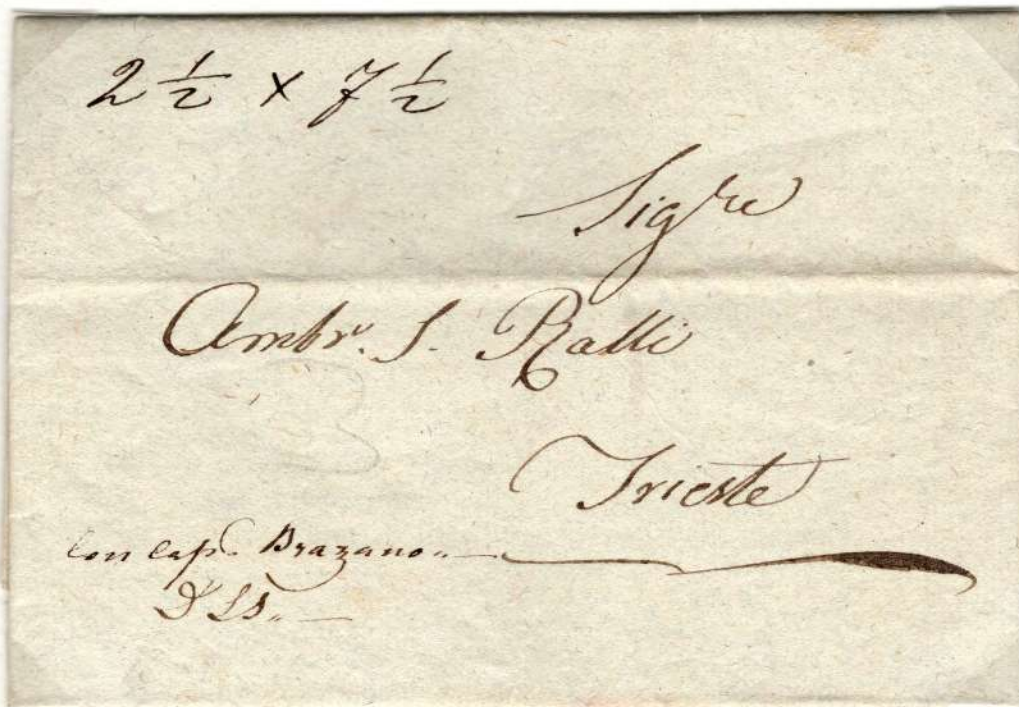 2 ½ x 7 ½
Sigre
Ambr. S. Ralli
Trieste
Con Cap. Brazano